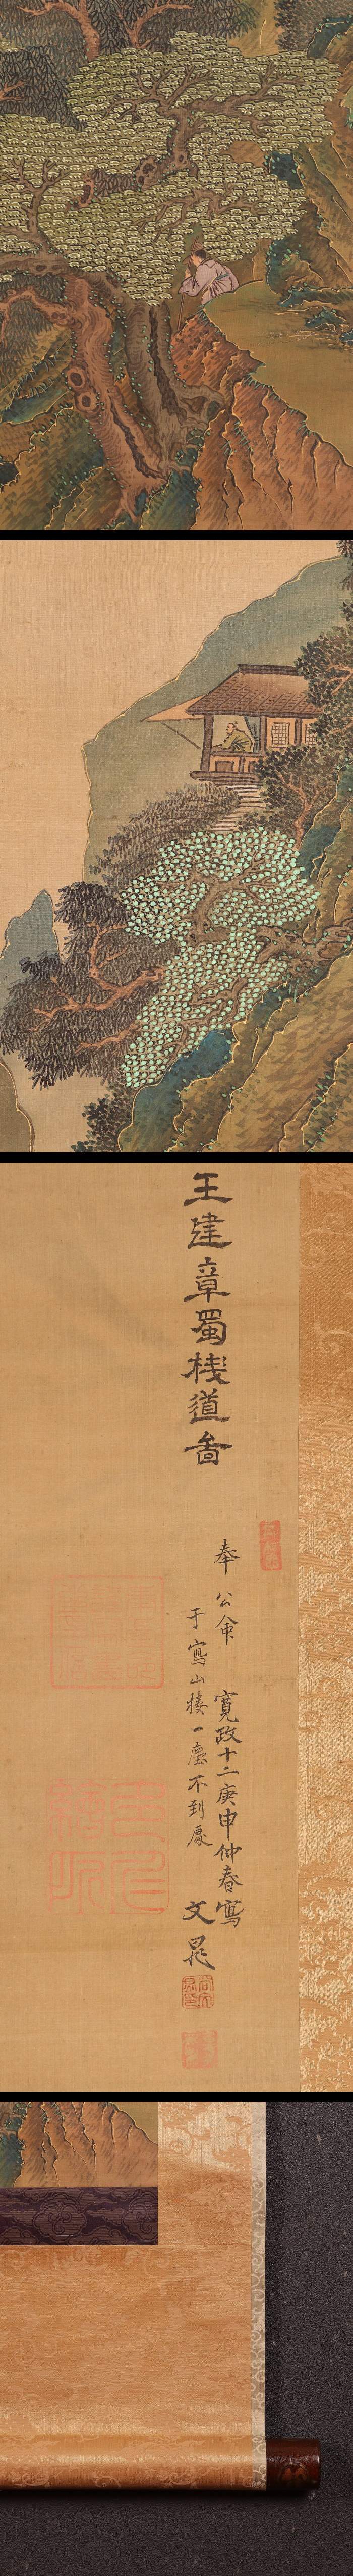 王建章蜀棧道啚
奉 公命 寛政十二庚申仲春寫
于寫山楼一塵不到處 文晁